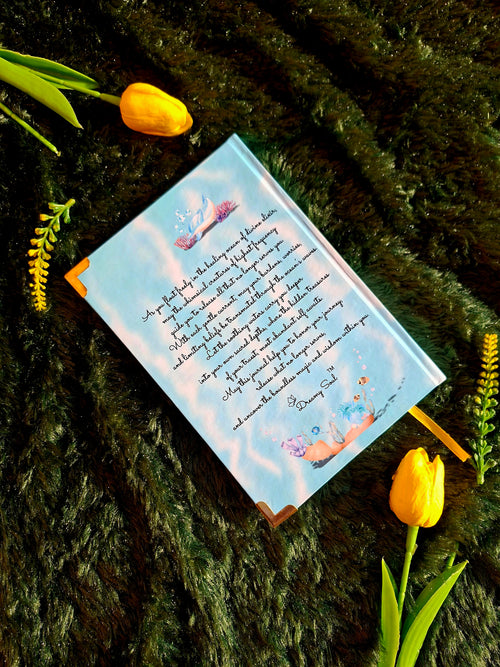 As you float freely in the healing ocean of divine desire,
may the alchemical creatures of highest frequency
guide you to release all that no longer serves you.
With each gentle current, may your burdens, worries,
and limiting beliefs be transmuted through the ocean's waves.
Let the soothing waters carry you deeper
into your own sacred depths, where the hidden treasures
of your truest, most abundant self awaits.
May this journal help you to honor your journey,
release what no longer serves,
and uncover the boundless magic and wisdom within you.
Dreamy Soul™